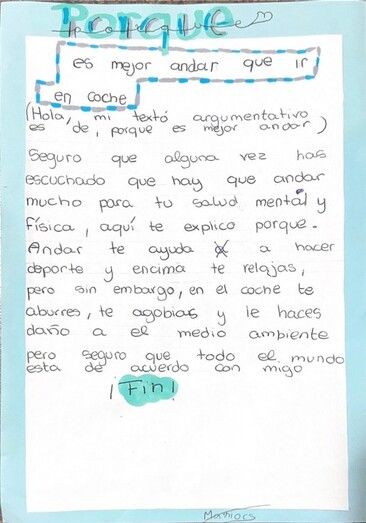 Porque
es mejor andar que ir
en coche
(Hola, mi textó argumentativo
es de, porque es mejor andar)
Seguro que alguna vez has
escuchado que hay que andar
mucho para tu salud mental y
física, aquí te explico porque.
Andar te ayuda a hacer
deporte y encima te relajas,
pero sin embargo, en el coche te
aburres, te agobias y le haces
daño a el medio ambiente
pero seguro que todo el mundo
esta de acuerdo con migo
¡Fin!